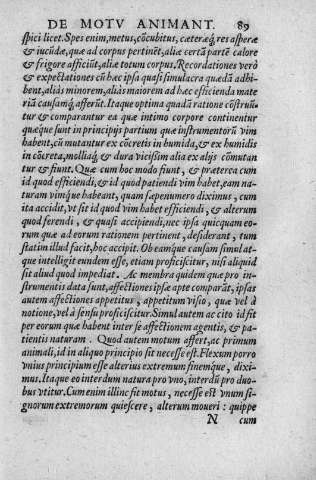 DE MOTV ANIMANT. 89
spici licet. Spes enim, metus, cõcubitus, cæteræq́; res asperæ
& iucũdæ, quæ ad corpus pertinẽt, aliæ certã partẽ calore
& frigore afficiũt, aliæ totum corpus. Recordationes verò
& expectationes cũ hæc ipsa quasi simulacra quædã adhi-
bent, aliàs minorem, aliàs maiorem ad hæc efficienda mate
riã causamq́; afferũt. Itaque optima quadã ratione cõstruũ-
tur & comparantur ea quæ intimo corpore continentur
quæq́ue sunt in principijs partium quæ instrumentorũ vim
habent, cũ mutantur ex cõcretis in humida, & ex humidis
in cõcreta, molliaq́; & dura vicißim alia ex alijs cõmutan
tur & fiunt. Quæ cum hoc modo fiunt, & præterea cum
id quod efficiendi, & id quod patiendi vim habet, eam na-
turam vimq́ue habeant, quam sæpenumero diximus, cum
ita accidit, vt sit id quod vim habet efficiendi, & alterum
quod ferendi, & quasi accipiendi, nec ipsa quicquam eo-
rum quæ ad eorum rationem pertinent, desiderant, tum
statim illud facit, hoc accipit. Ob eamq́ue causam simul at-
que intelligit eundem esse, etiam proficiscitur, nisi aliquid
sit aliud quod impediat. Ac membra quidem quæ pro in-
strumentis data sunt, affectiones ipsæ aptè comparãt, ipsas
autem affectiones appetitus, appetitum visio, quæ vel à
notione, vel à sensu proficiscitur. Simul autem ac cito id fit
per eorum quæ habent inter se affectionem agentis, & pa-
tientis naturam. Quod autem motum affert, ac primum
animali, id in aliquo principio sit necesse est. Flexum porro
vnius principium esse alterius extremum finemq́ue, dixi-
mus. Itaque eo interdum natura pro vno, interdũ pro duo-
bus vtitur. Cum enim illinc fit motus, necesse est vnum si-
gnorum extremorum quiescere, alterum moueri: quippe
N cum